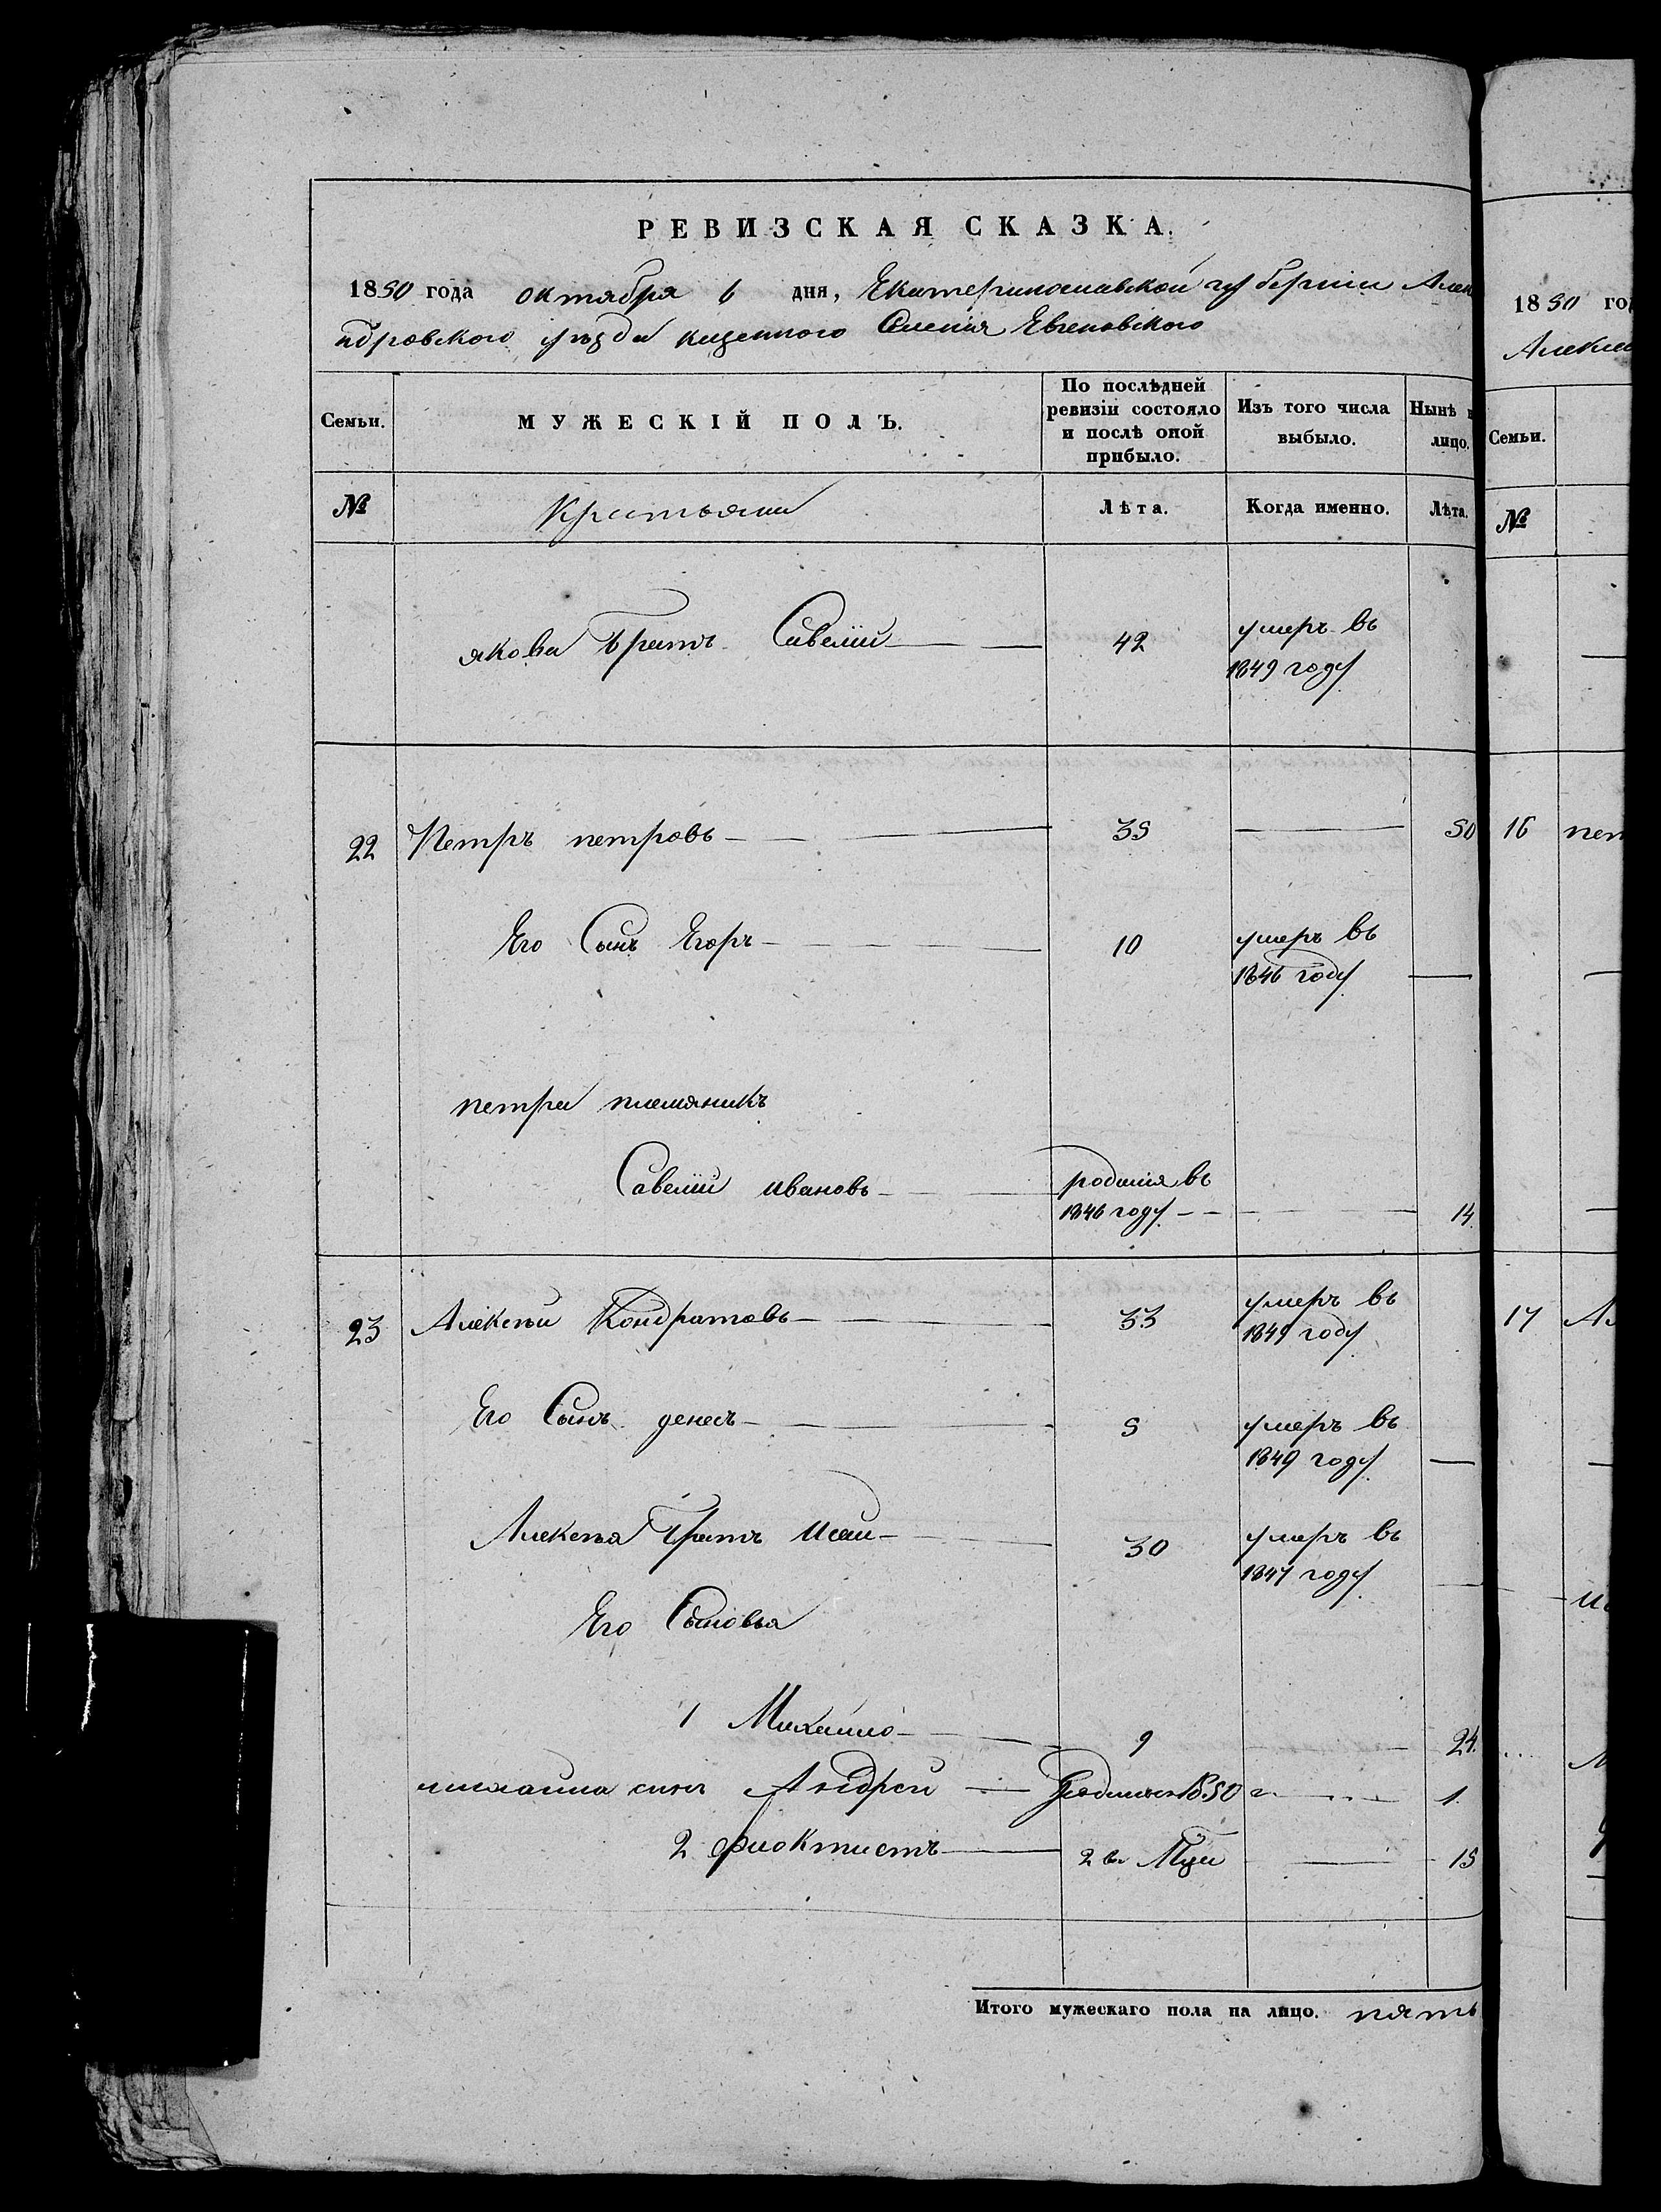 РЕВИЗСКАЯ СКАЗКА.
1850 года октября 6 дня, Екатеринославской губерніи Алек
ндровского уѣзда казенного Селенія Евгеновского
Семьи.
МУЖЕСКІЙ ПОЛЪ.
По послѣдней ревизіи состояло и послѣ оной прибыло.
Изъ того числа выбыло.
Нынѣ н лицо.
№
Крестьяни
Лѣта.
Когда именно.
Лѣта.
якова братъ Савелій 42 умеръ въ
1849 году
22 Петръ петровъ 35 50
Его Сынъ Егоръ 10 умеръ въ
1846 году
петра племяникъ
Савелій ивановъ родился въ
1846 году 14.
23 Алексѣй Кондратовъ 33 умеръ въ
1849 году
Его Сынъ денесъ 5 умеръ въ
1849 году
Алексѣя братъ исаи 30 умеръ въ
1847 году
Его Сыновья
1 Михаило 9 24.
михаила синъ Андрей родился 1850 г. 1.
2 фиоктистъ 15
Итого мужескаго пола на лицо. пять
1850 го
Алекса
Семьи.
№
16 пет
17 Ал